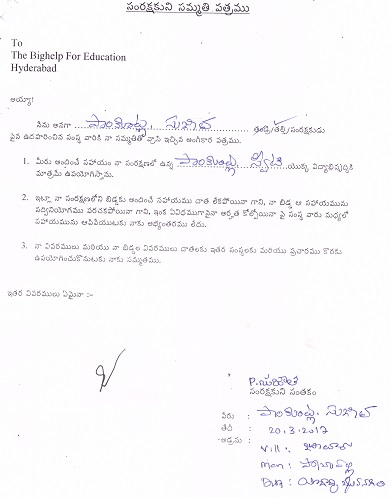 సంరక్షకుని సమ్మతి పత్రము
To
The Bighelp For Education
Hyderabad
అయ్యా!
నేను అనగా పొంకుంట్ల సుజాత తండ్రి/తల్లి/సంరక్షకుడు
పైన ఉదహరించిన సంస్థ వారికి నా సమ్మతితో వ్రాసి ఇచ్చిన అంగీకార పత్రము.
1. మీరు అందించే సహాయం నా సంరక్షణలో ఉన్న పొంకుంట్ల స్వాతి యొక్క విద్యాభివృద్ధికి
మాత్రమే ఉపయోగిస్తాను.
2. ఇట్లా నా సంరక్షణలోని బిడ్డకు అందించే సహాయము చాత లేకపోయినా గాని, నా బిడ్డ ఆ సహాయమును
సద్వినియోగము పరచకపోయినా గాని, ఇంక ఏవిధముగానైనా అర్హత కోల్పోయినా పై సంస్థ వారు మధ్యలో
సహాయమును ఆపివేయుటకు నాకు అభ్యంతరము లేదు.
3. నా వివరములు మరియు నా బిడ్డల వివరములు దాతలకు ఇతర సంస్థలకు మరియు ప్రచారము కొరకు
ఉపయోగించుకొనుటకు నాకు సమ్మతము.
ఇతర వివరములు ఏమైనా :-
P. సుజాత
సంరక్షకుని సంతకం
పేరు : పొంకుంట్ల సుజాత
తేదీ : 20.3.2017
అడ్రసు : Vill :
Man :
Dist :